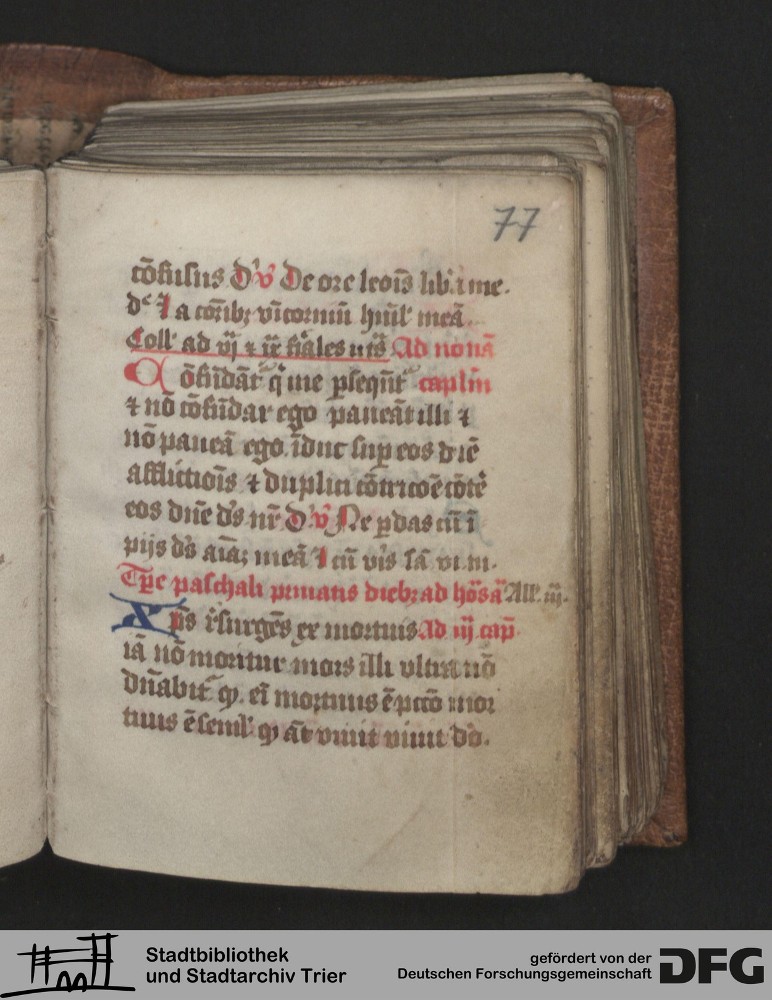 77
cōfusus d' v̄ De ore leoīs lib'a me.
d' 7 a cornib; vnicorniū hūil' meā
Coll' ad vj 7 ix fiales ut s̄ Ad nonā
Cōfūdāt' q' me ꝑseqūt' capl'm
7 nō cōfūdar ego paueāt illi 7
nō paueā ego īduc suꝑ eos diē
afflictiōis 7 duplici cōtricōe cōtē
eos dn̄e d's nr̄ d' v̄ Ne ꝑdas cū ī
pijs d's aīa; meā 7 cū vis sā vi m.
Tꝑe paschali priuatis dieb; ad hōsā All' iij.
Xp̄s r̄surgēs ex mortuis Ad iij cap̄
iā nō moritur mors illi vltra nō
dn̄abit' qꝫ. eī mortuus ē pctō mor
tuus ē semel' qꝫ āt viuit viuit dō.
Stadtbibliothek
und Stadtarchiv Trier
gefördert von der
Deutschen Forschungsgemeinschaft
DFG